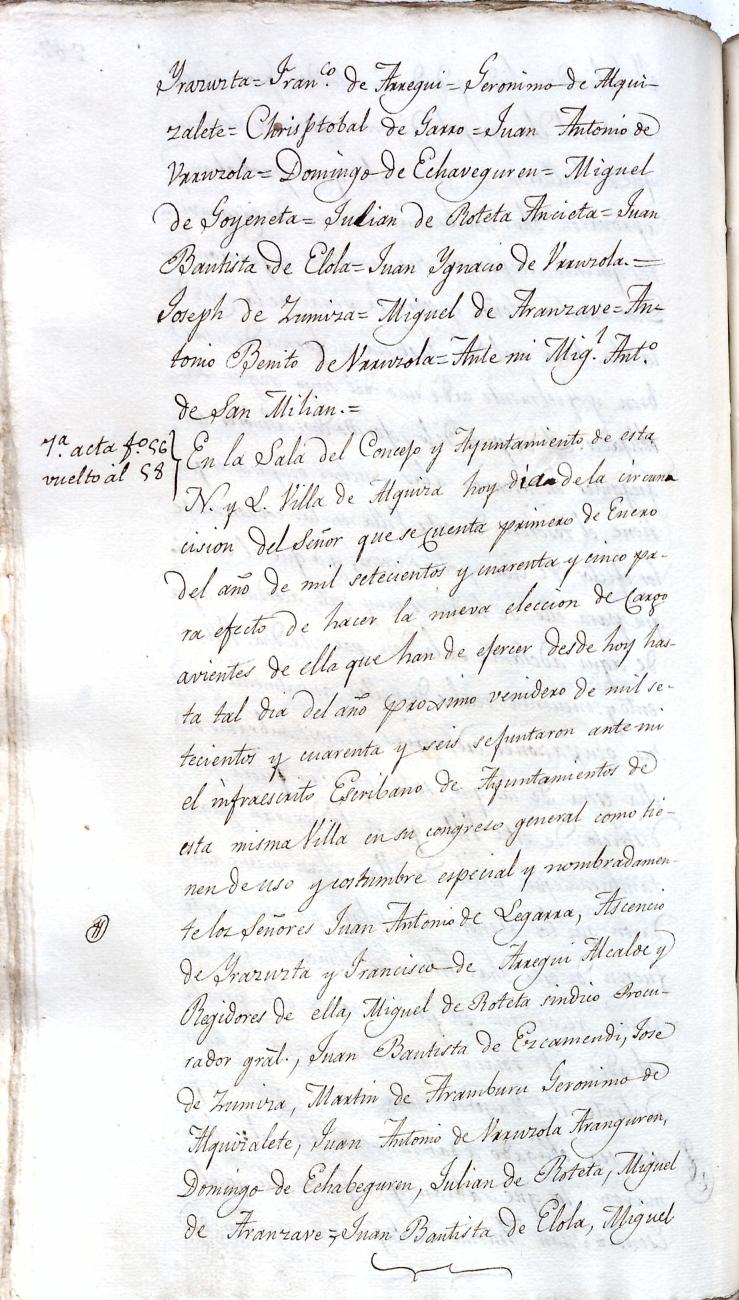 Yrazuzta= Fran.co de Arregui= Geronimo de Alqui-
zalete= Chrisptobal de Garro= Juan Antonio de
Vrruzola= Domingo de Echaveguren= Miguel
de Goyeneta= Julian de Roteta Ancieta= Juan
Bautista de Elola= Juan Ygnacio de Vrruzola.=
Joseph de Zumiza= Miguel de Aranzave= An-
tonio Benito de Vrruzola= Ante mi Mig.l Ant.o
de San Milian.=
7.a acta fo. 56
vuelto àl 58
En la Sala del Concejo y Ayuntamiento de esta
N. y L. Villa de Alquiza hoy dia de la circun
cision del Señor que se cuenta primero de Enero
del año de mil setecientos y cuarenta y cinco pa-
ra efecto de hacer la nueva eleccion de Cargo
avientes de ella que han de ejercer desde hoy has-
ta tal dia del año prossimo venidero de mil se-
tecientos y cuarenta y seis se juntaron ante mi
el infraescrito Escribano de Ayuntamientos de
esta misma Villa en su congreso general como tie-
nen de uso y costumbre especial y nombradamen-
te los Señores Juan Antonio de Legarra, Ascencio
de Yrazuzta y Francisco de Arregui Alcalde y
Regidores de ella, Miguel de Roteta sindico Procu-
rador gral., Juan Bautista de Ezcamendi, Jose
de Zumiza, Martin de Aramburu Geronimo de
Alquizalete, Juan Antonio de Vrruzola Aranguren,
Domingo de Echabeguren, Julian de Roteta, Miguel
de Aranzave=, Juan Bautista de Elola, Miguel